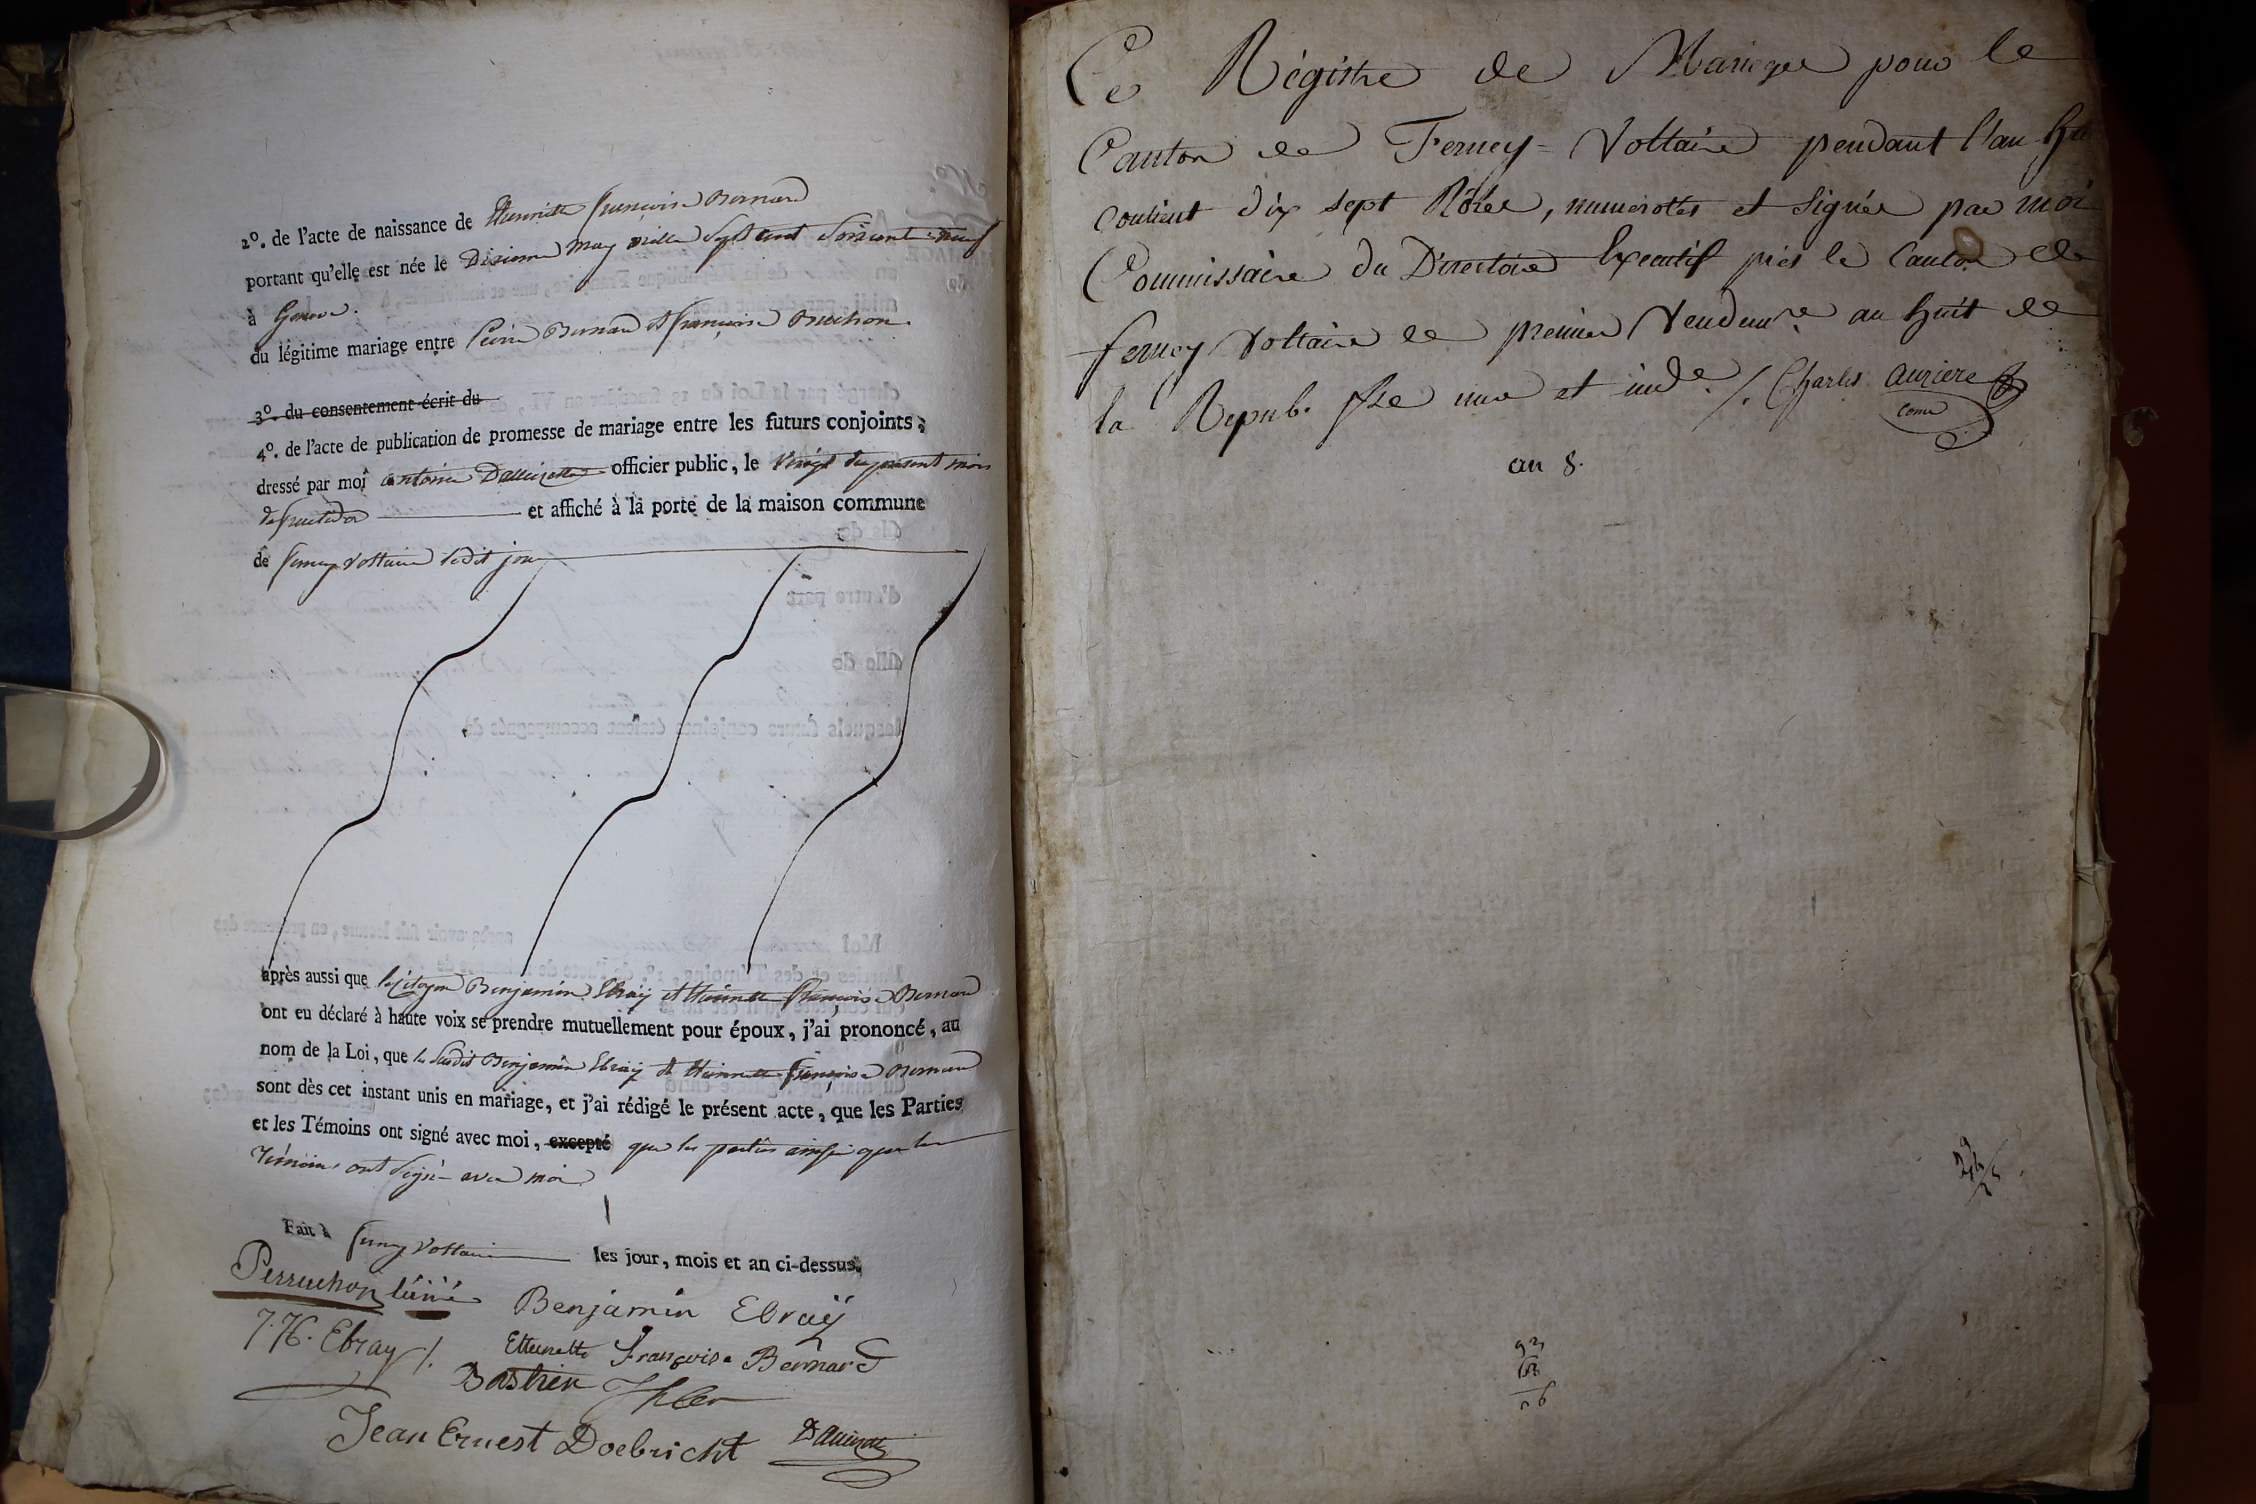 2º. de l'acte de naissance de Henriette françoise Bernard
portant qu'elle est née le Dixieme may mille Sept cent Soixante-neuf
à Geneve.
du légitime mariage entre Pierre Bernard et françoise Bruchon.
3º. du consentement écrit du
4º. de l'acte de publication de promesse de mariage entre les futurs conjoints,
dressé par moi antoine Dauizette officier public, le Vingt du présent mois
de fructidor et affiché à la porte de la maison commune
de ferney Voltaire ledit jour
après aussi que le Citoyen Benjamin Ebraÿ et Henriette Françoise Bernard
ont eu déclaré à haute voix se prendre mutuellement pour époux, j'ai prononcé, au
nom de la Loi, que le Susdit Benjamin Ebraÿ et Henriette Françoise Bernard
sont dès cet instant unis en mariage, et j'ai rédigé le présent acte, que les Parties
et les Témoins ont signé avec moi, excepté que les parties ainsi que les
témoins ont Signé avec moi
Fait à ferney Voltaire les jour, mois et an ci-dessus.
Perruchon Benjamin Ebraÿ
Ebray Françoise Bernard
Bastien
Jean Ernest Doebricht
Ce Régistre de Mariages pour le
Canton de Ferney-Voltaire pendant l'an
contient dix sept Rôles, numerottés et Signés par moi
Commissaire du Directoire Executif près le Canton de
ferney Voltaire le premier Vendemre. an huit de
la Repub. fse une et inde. /. Charles auriere
Come
an 8.